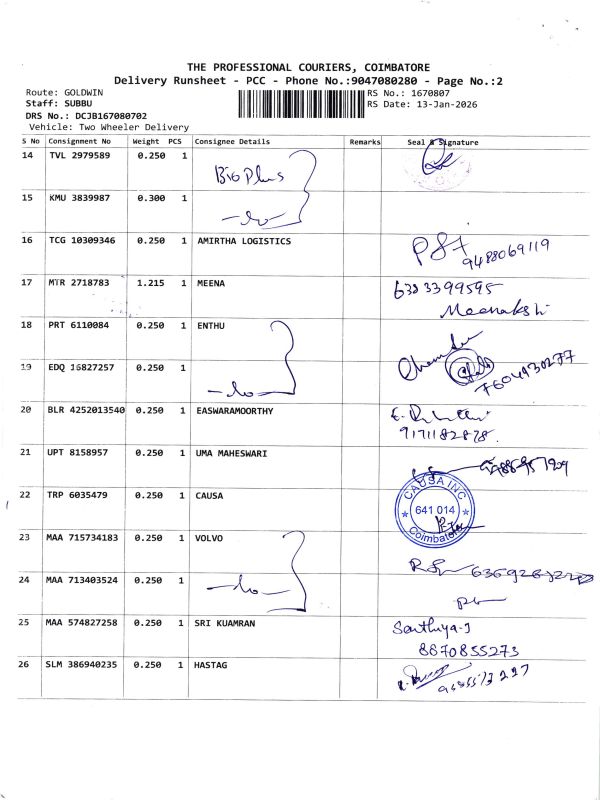 THE PROFESSIONAL COURIERS, COIMBATORE
Delivery Runsheet - PCC - Phone No.:9047080280 - Page No.:2
Route: GOLDWIN
Staff: SUBBU
DRS No.: DCJB167080702
Vehicle: Two Wheeler Delivery
RS No.: 1670807
RS Date: 13-Jan-2026
S No Consignment No Weight PCS Consignee Details Remarks Seal & Signature
14 TVL 2979589 0.250 1 Bio Plus
15 KMU 3839987 0.300 1 -do-
16 TCG 10309346 0.250 1 AMIRTHA LOGISTICS
9488069119
17 MTR 2718783 1.215 1 MEENA 6383399595
Meenakshi
18 PRT 6110084 0.250 1 ENTHU
19 EDQ 16827257 0.250 1 -do- 7604930277
20 BLR 4252013540 0.250 1 EASWARAMOORTHY
9171182878
21 UPT 8158957 0.250 1 UMA MAHESWARI
22 TRP 6035479 0.250 1 CAUSA
CAUSA INC
641 014
Coimbatore
23 MAA 715734183 0.250 1 VOLVO
24 MAA 713403524 0.250 1 -do-
25 MAA 574827258 0.250 1 SRI KUAMRAN Santhiya-J
8870855273
26 SLM 386940235 0.250 1 HASTAG